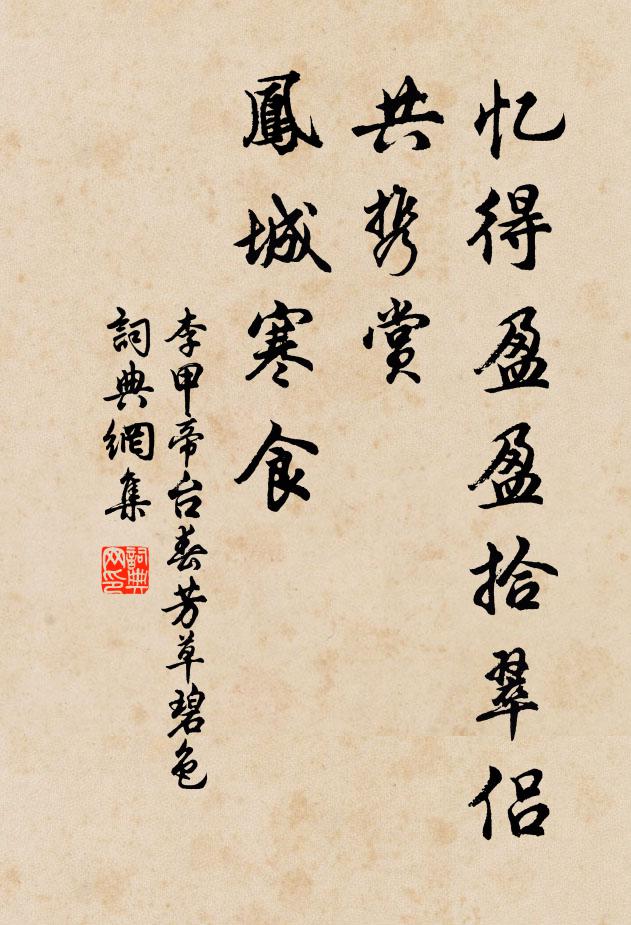 忆得盈盈拾翠侣
共携赏
鳳城寒食
李甲帝台春芳草碧色
詞典網集
詞典网印